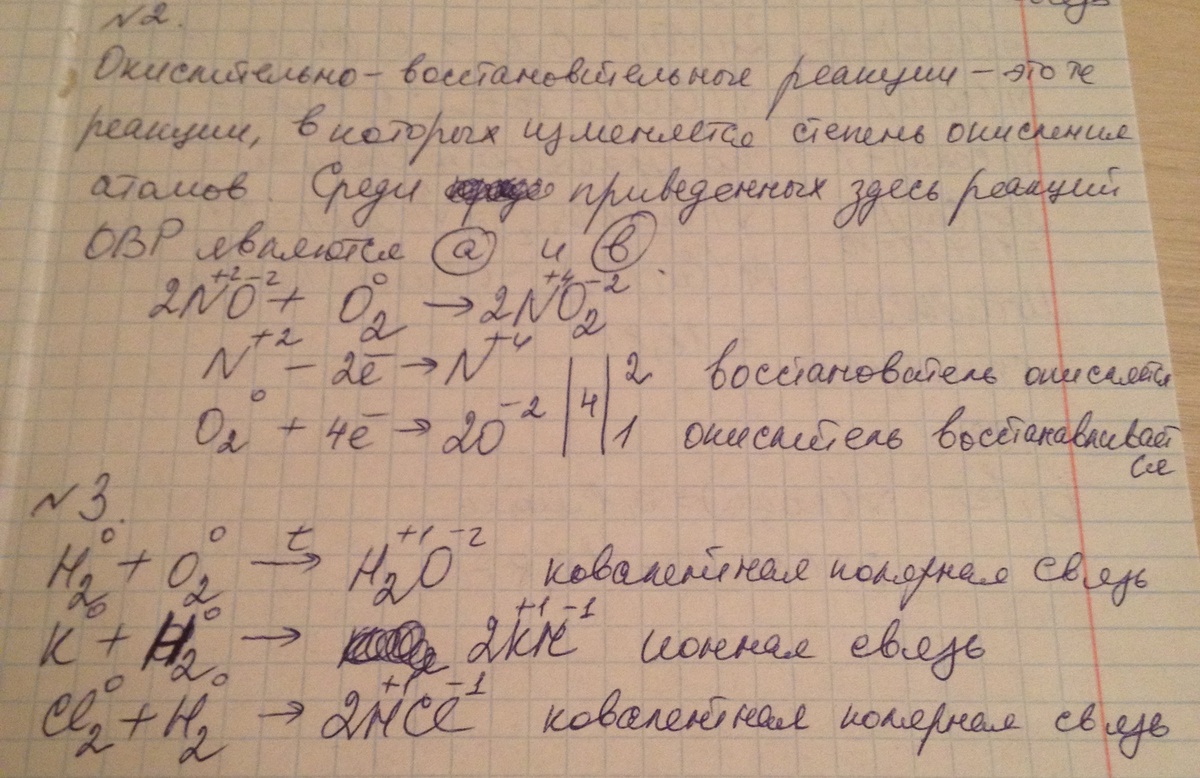 №2.
Окислительно-восстановительные реакции – это те
реакции, в которых изменяется степень окисления
атомов. Среди приведенных здесь реакций
ОВР являются а и в.
2N⁺²O⁻² + O₂⁰ → 2N⁺⁴O₂⁻²
N⁺² – 2e̅ → N⁺⁴ | | 2 восстановитель окисляется
O₂⁰ + 4e̅ → 2O⁻² | 4 | 1 окислитель восстанавливает
ся
№3.
H₂⁰ + O₂⁰ →ᵗ H₂⁺¹O⁻² ковалентная полярная связь
K⁰ + H₂⁰ → 2K⁺¹H⁻¹ ионная связь
Cl₂⁰ + H₂⁰ → 2H⁺¹Cl⁻¹ ковалентная полярная связь